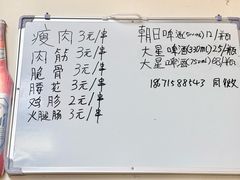 瘦肉 3元/串
肉筋 3元/串
脆骨 3元/串
腰花 3元/串
鸡胗 2元/串
火腿肠 3元/串
朝日啤酒(500ml) 12/瓶
大星啤酒(330ml) 25/瓶
大星啤酒(750ml) 68/瓶
18671588543 同微